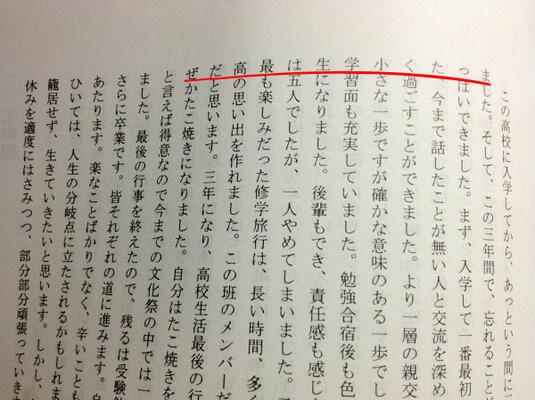 この高校に入学してから、あっという間に三
ました。そして、この三年間で、忘れること
っぱいできました。まず、入学して一番最初
た。今まで話したことが無い人と交流を深め
く過ごすことができました。より一層の親交
小さな一歩ですが確かな意味のある一歩でし
学習面も充実していました。勉強合宿後も色
生になりました。後輩もでき、責任感も感じ
は五人でしたが、一人やめてしまいました。
最も楽しみだった修学旅行は、長い時間、多く
高の思い出を作れました。この班のメンバーだ
だと思います。三年になり、高校生活最後の行
ぜかたこ焼きになりました。自分はたこ焼きを
と言えば得意なので今までの文化祭の中では一
ました。最後の行事を終えたので、残るは受験
さらに卒業です。皆それぞれの道に進みます。
あたります。楽なことばかりでなく、辛いことも
ひいては、人生の分岐点に立たされるかもしれま
籠居せず、生きていきたいと思います。しかし、
休みを適度にはさみつつ、部分部分頑張っていき